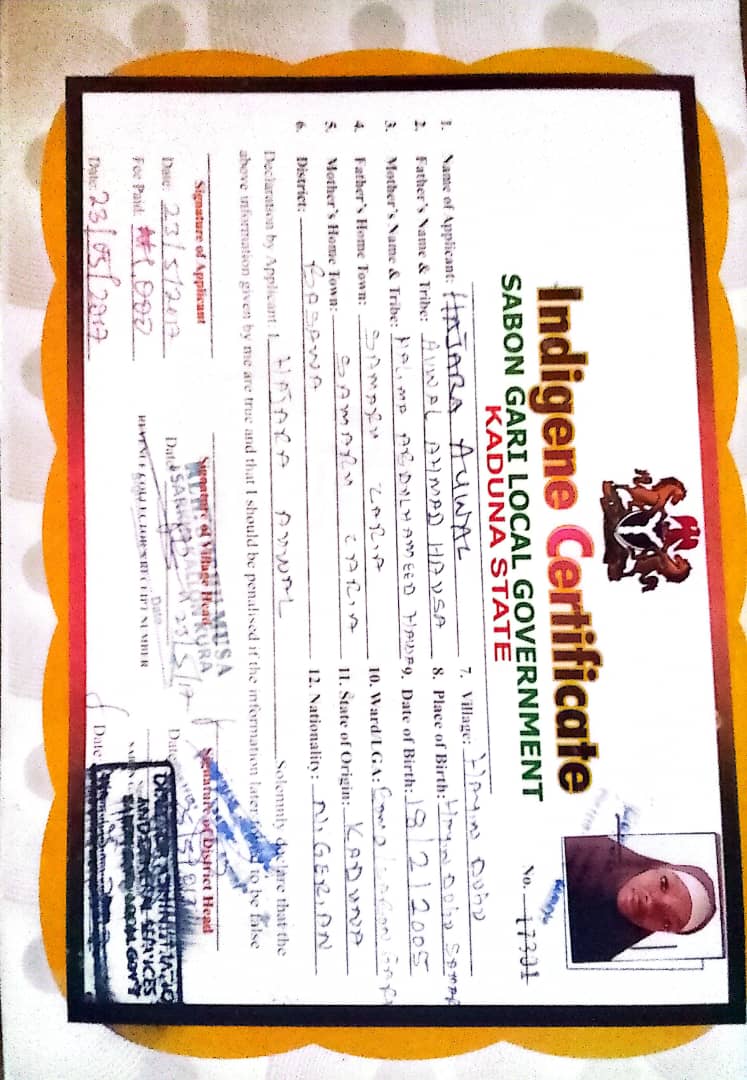 Indigene Certificate
SABON GARI LOCAL GOVERNMENT
KADUNA STATE
No. 17301
1. Name of Applicant: HAJARA AUWAL
2. Father's Name & Tribe: AUWAL AHMAD HAUSA
3. Mother's Name & Tribe: HALIMA ABDULHAMEED HAUSA
4. Father's Home Town: SAMARU ZARIA
5. Mother's Home Town: SAMARU ZARIA
6. District: BASAWA
7. Village: HAYIN DOGO
8. Place of Birth: HAYIN DOGO SAMAR
9. Date of Birth: 19/2/2005
10. Ward/LGA:
11. State of Origin: KADUNA
12. Nationality: NIGERIAN
Declaration by Applicant I HAJARA AUWAL Solemnly declare that the
above information given by me are true and that I should be penalised if the information later to be false
Signature of Applicant
Date: 23/5/2017
Fee Paid: ₦1000
Date: 23/05/2017
Signature of Village Head
MUSA
Date 23/5/17
REVENUE COLLECTOR'S RECEIPT NUMBER
Date
Signature of District Head
Date
Date: